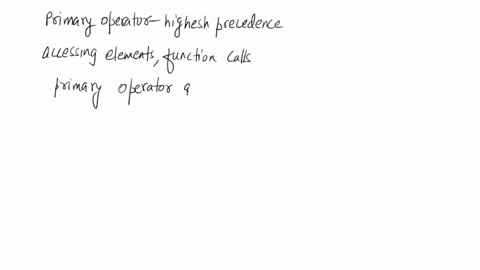 Primary operator - highesh precedence
accessing elements, function calls
primary operator a